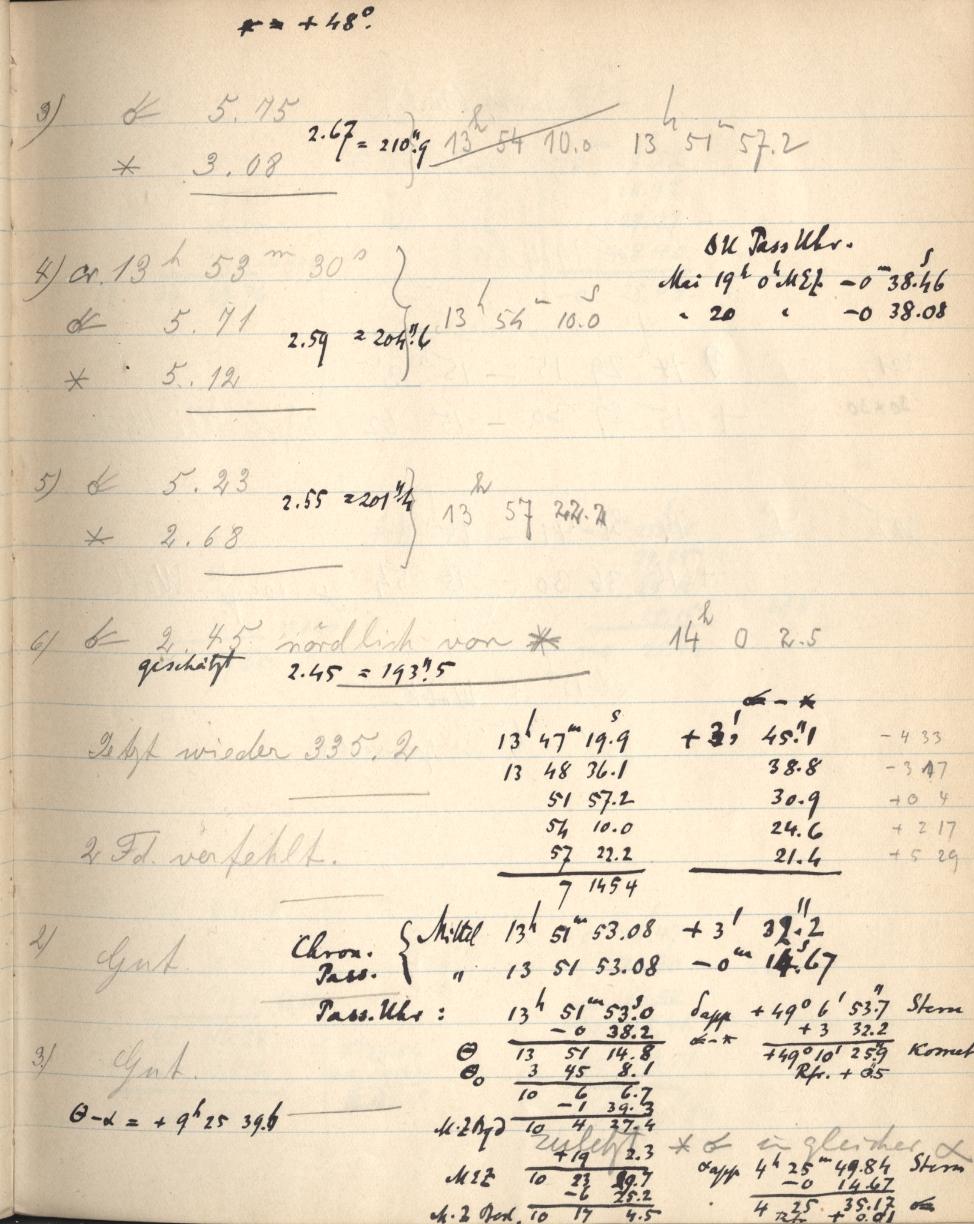 * = + 48°.
3) ☄ 5.75
2.67 = 210".9 13h 54 10.0 13h 51m 57.2
* 3.08
ΔU Pass Uhr.
4) cr. 13h 53m 30s Mai 19h 0h MEZ -0m 38.46s
☄ 5.71 13h 54m 10.0s " 20 " -0 38.08
2.59 = 204".6
* 5.12
5) ☄ 5.23
2.55 = 201".4 13h 57 22.2
* 2.68
6) ☄ 2.45 nördlich von * 14h 0 2.5
geschätzt 2.45 = 193".5
☄ - *
Jetzt wieder 335.2 13h 47m 19.9s + 3' 45".1 - 4 33
13 48 36.1 38.8 - 3 17
51 57.2 30.9 + 0 4
54 10.0 24.6 + 2 17
2 Fd. verfehlt. 57 22.2 21.4 + 5 29
7 145 4
2) Gut. Chron. { Mittel 13h 51m 53.08 + 3' 32".2
Pass. " 13 51 53.08 - 0m 14.67s
Pass. Uhr : 13h 51m 53.0s δapp +49° 6' 53".7 Stern
-0 38.2 ☄-* +3 32.2
3) Gut. Θ 13 51 14.8 +49° 10' 25".9 Komet
Θ₀ 3 45 8.1 Rfr. + 0.5
10 6 6.7
-1 39.3
Θ-α = + 9h 25 39.6 M.Z Bgd 10 4 27.4
zuletzt * ☄ in gleicher α
+19 2.3 αapp 4h 25m 49.84 Stern
MEZ 10 23 29.7 -0 14.67
-6 25.2 4 25 35.17 ☄
10 17 4.5 Rfr. + 0.01